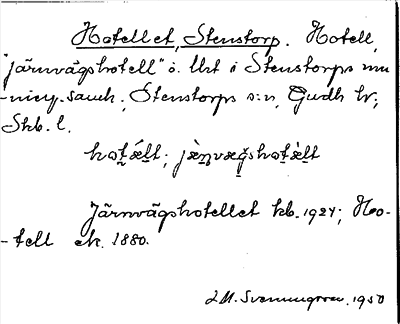 Hotellet, Stenstorp. Hotell,
"järnvägshotell" ö. Urt i Stenstorps mu-
-nicip.samh., Stenstorps s:n, Gudh hr;
Skb. l.
hotǽlt; jæ̀ṇvægshotæ̀lt
Järnvägshotellet kb. 1927; Ho-
-tell ek. 1880.
1950